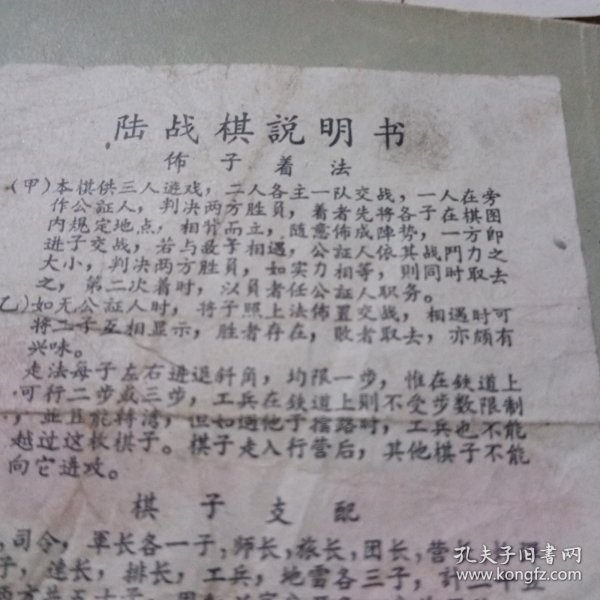 陆战棋說明书
佈子着法
(甲)本棋供三人遊戏，二人各主一队交战，一人在旁
作公証人，判决两方胜負，着者先将各子在棋图
内規定地点，相背而立，随意佈成陣势，一方即
进子交战，若与敌子相遇，公証人依其战鬥力之
大小，判决两方胜負，如实力相等，则同时取去
之，第二次着时，以負者任公証人职务。
乙)如无公証人时，将子照上法佈置交战，相遇时可
将二子互相显示，胜者存在，敗者取去，亦頗有
兴味。
走法每子左右进退斜角，均限一步，惟在鉄道上
可行二步或三步，工兵在鉄道上则不受步数限制
，並且能转湾，但如遇他子擋路时，工兵也不能
越过这枚棋子。棋子走入行营后，其他棋子不能
向它进攻。
棋子支配
，司令，軍长各一子，师长，旅长，团长，营长，
子，連长，排长，工兵，地雷各三子，計二十五
孔夫子旧书网
www.kongfz.com